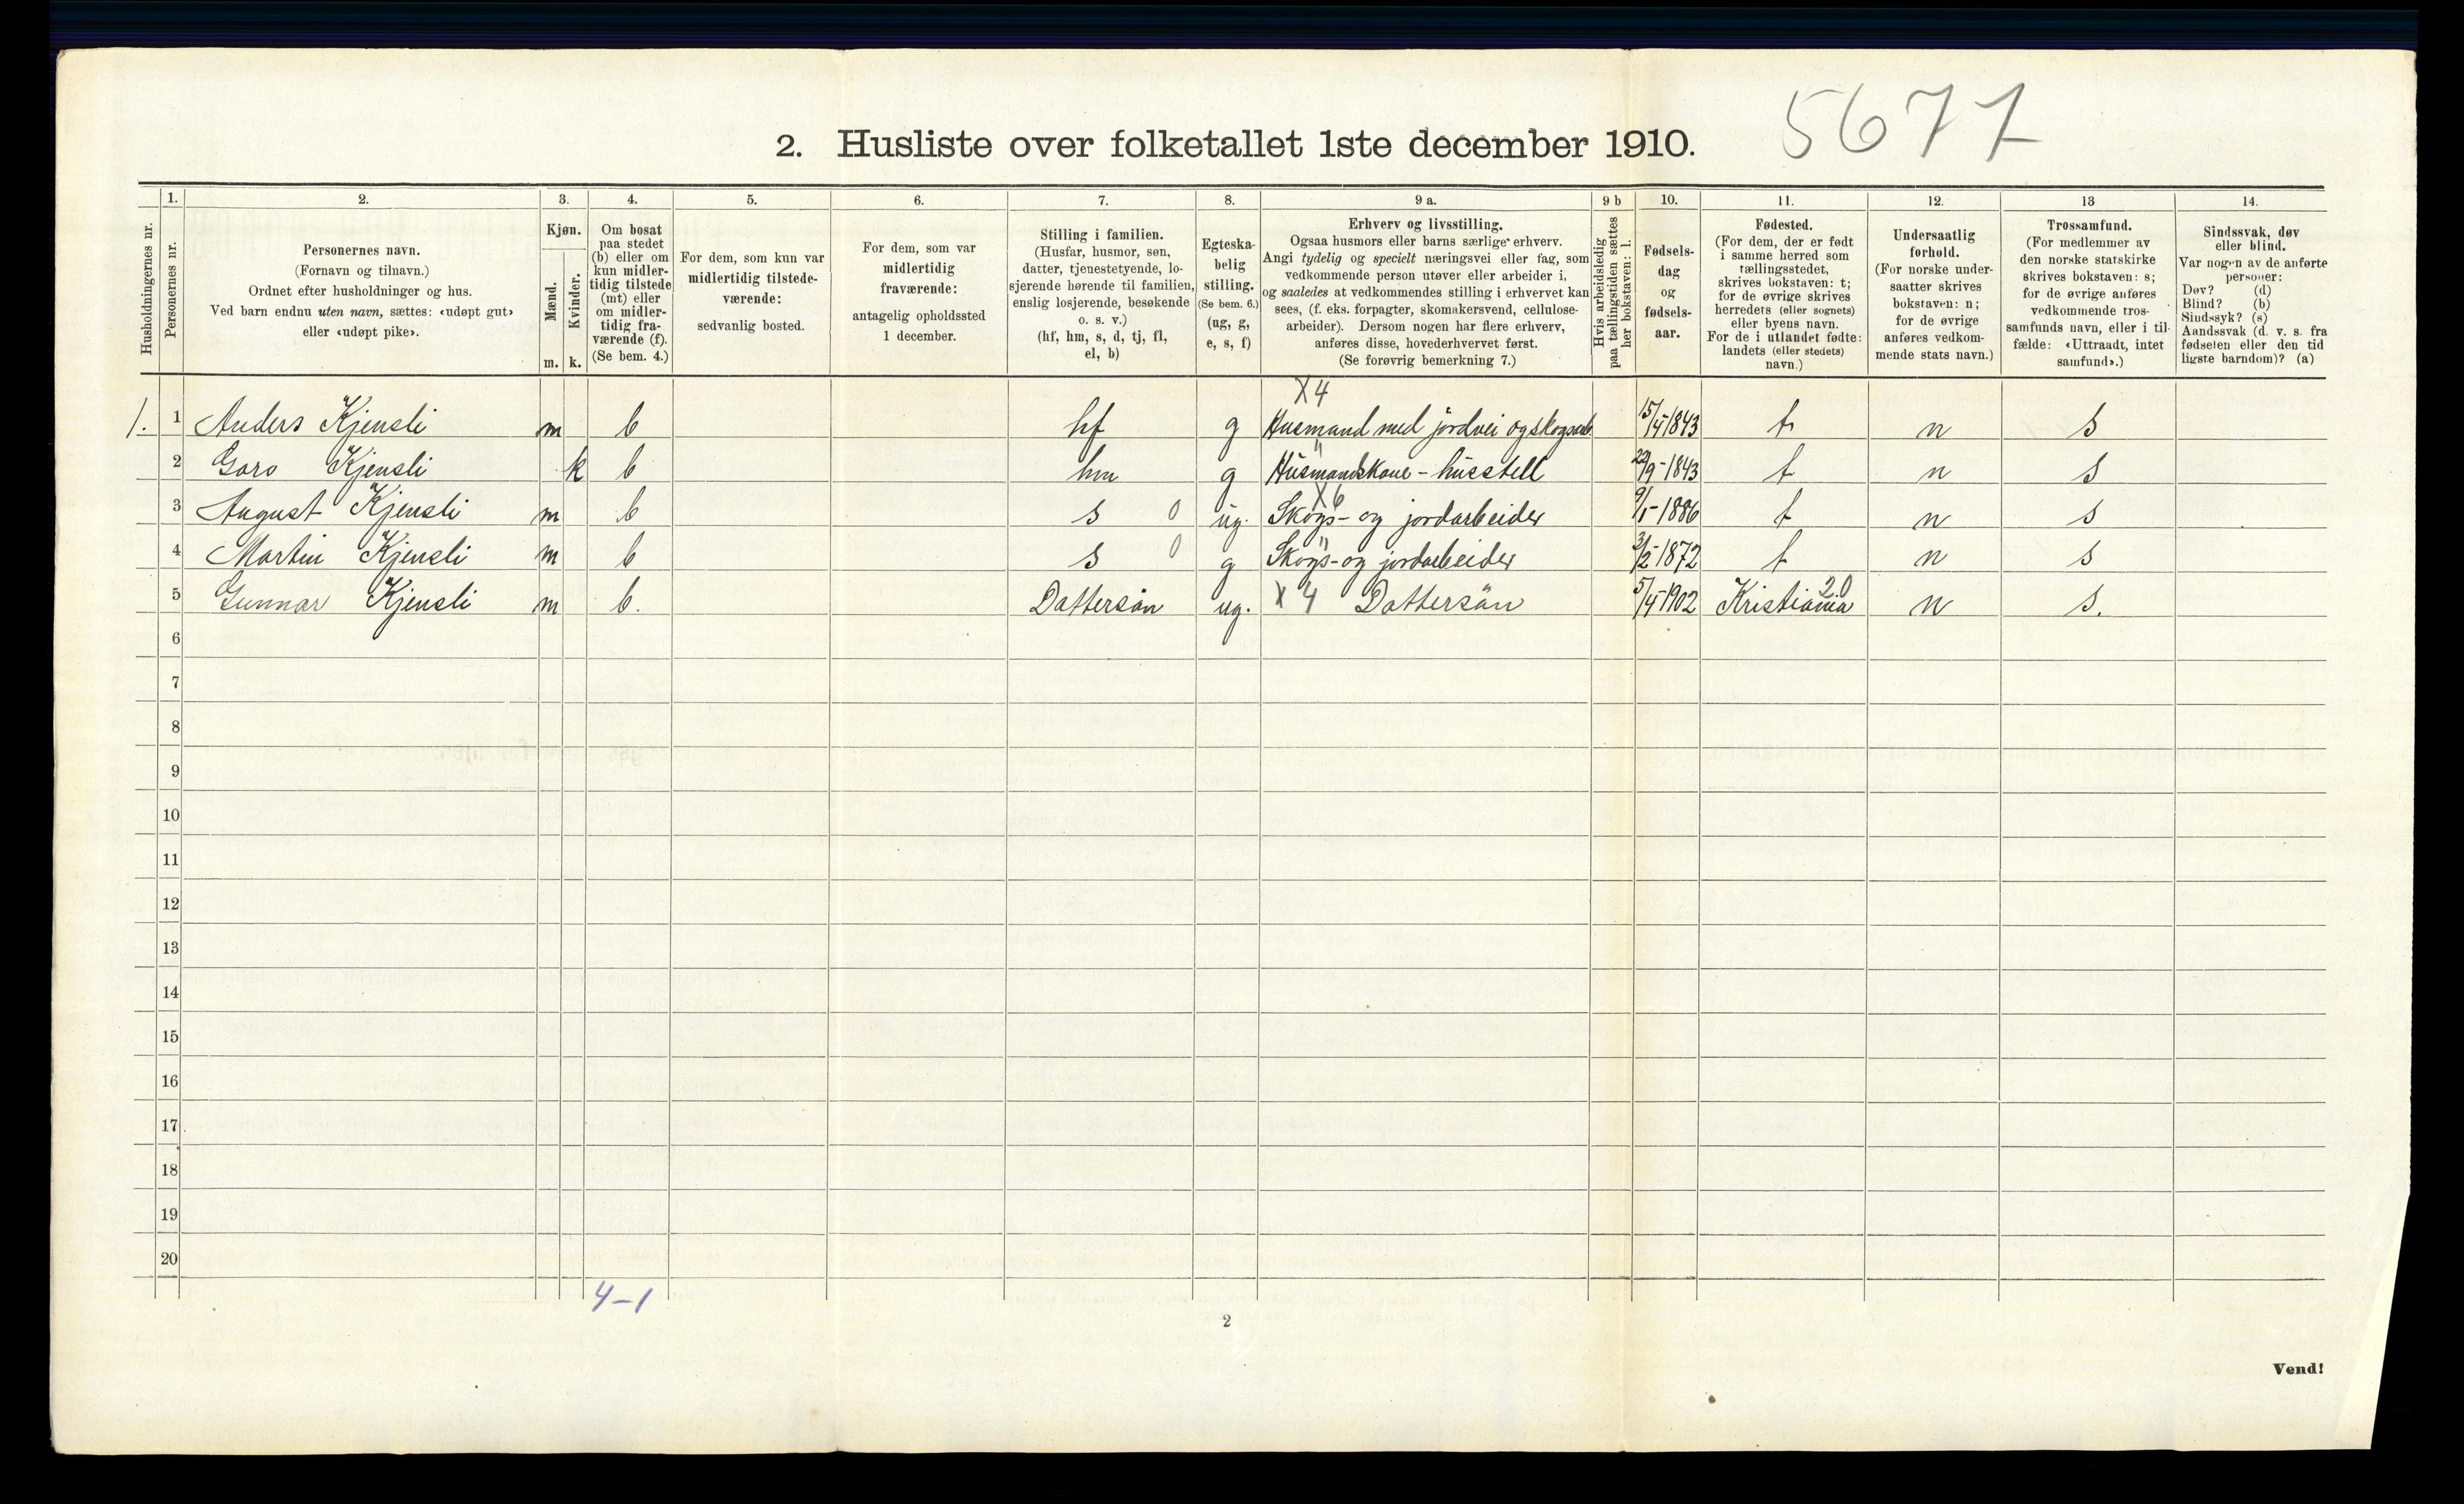 5677
2. Husliste over folketallet 1ste december 1910.
Husholdningernes nr.
1.
Personernes nr.
2.
Personernes navn.
(Fornavn og tilnavn.)
Ordnet efter husholdninger og hus.
Ved barn endnu uten navn, sættes: «udøpt gut»
eller «udøpt pike».
3.
Kjøn.
Mænd.
m.
Kvinder.
k.
4.
Om bosat
paa stedet
(b) eller om
kun midler-
tidig tilstede
(mt) eller
om midler-
tidig fra-
værende (f).
(Se bem. 4.)
5.
For dem, som kun var
midlertidig tilstede-
værende:
sedvanlig bosted.
6.
For dem, som var
midlertidig
fraværende:
antagelig opholdssted
1 december.
7.
Stilling i familien.
(Husfar, husmor, søn,
datter, tjenestetyende, lo-
sjerende hørende til familien,
enslig losjerende, besøkende
o. s. v.)
(hf, hm, s, d, tj, fl,
el, b)
8.
Egteska-
belig
stilling.
(Se bem. 6.)
(ug, g,
e, s, f)
9 a.
Erhverv og livsstilling.
Ogsaa husmors eller barns særlige erhverv.
Angi tydelig og specielt næringsvei eller fag, som
vedkommende person utøver eller arbeider i,
og saaledes at vedkommendes stilling i erhvervet kan
sees, (f. eks. forpagter, skomakersvend, cellulose-
arbeider). Dersom nogen har flere erhverv,
anføres disse, hovederhvervet først.
(Se forøvrig bemerkning 7.)
9 b
Hvis arbeidsledig
paa tællingstiden sættes
her bokstaven: l.
10.
Fødsels-
dag
og
fødsels-
aar.
11.
Fødested.
(For dem, der er født
i samme herred som
tællingsstedet,
skrives bokstaven: t;
for de øvrige skrives
herredets (eller sognets)
eller byens navn.
For de i utlandet fødte:
landets (eller stedets)
navn.)
12.
Undersaatlig
forhold.
(For norske under-
saatter skrives
bokstaven: n;
for de øvrige
anføres vedkom-
mende stats navn.)
13
Trossamfund.
(For medlemmer av
den norske statskirke
skrives bokstaven: s;
for de øvrige anføres
vedkommende tros-
samfunds navn, eller i til-
fælde: «Uttraadt, intet
samfund».)
14.
Sindssvak, døv
eller blind.
Var nogen av de anførte
personer:
Døv? (d)
Blind? (b)
Sindssyk? (s)
Aandssvak (d. v. s. fra
fødselen eller den tid-
ligste barndom)? (a)
X4
1. 1 Anders Kjensli m b hf g Husmand med jordvei og skogsarb 15/4-1843 t n s
"
2 Goro Kjensli k b hm g Husmandskone - husstell 22/9-1843 t n s
X6
3 August Kjensli m b s 0 ug. Skogs- og jordarbeider 9/1-1886 t n s
"
4 Martin Kjensli m b s 0 g Skogs- og jordarbeider 3/2-1872 t n s
20
5 Gunnar Kjensli m b. Dattersøn ug. X 4 Dattersøn 5/4-1902 Kristiania n s.
6
7
8
9
10
11
12
13
14
15
16
17
18
19
20
4-1
2
Vend!